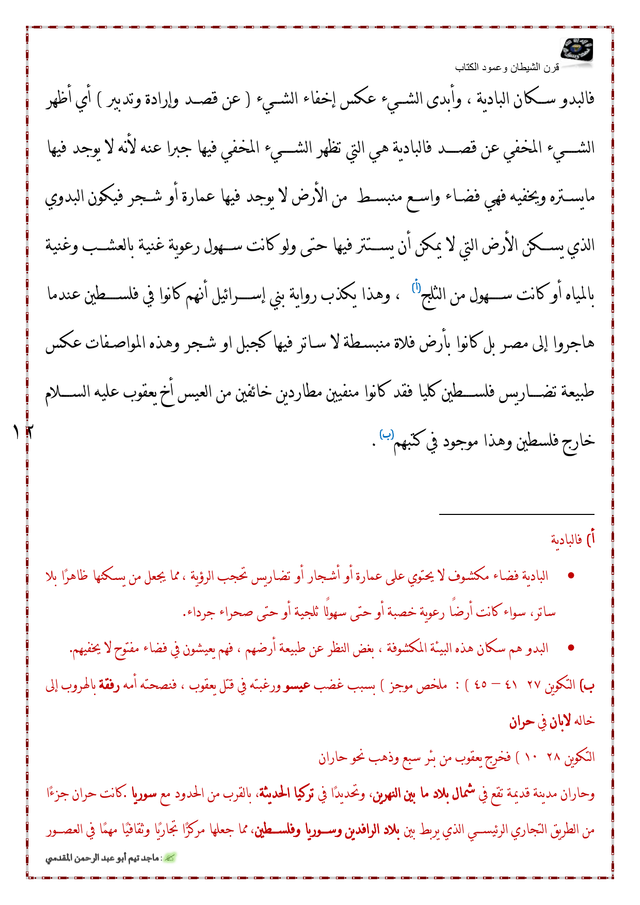 قرن الشيطان وعمود الكتاب
فالبدو سكان البادية ، وأبدى الشيء عكس إخفاء الشيء ( عن قصد وإرادة وتدبير ) أي أظهر
الشيء المخفي عن قصد فالبادية هي التي تظهر الشيء المخفي فيها جبرا عنه لأنه لا يوجد فيها
مايستره ويخفيه فهي فضاء واسع منبسط من الأرض لا يوجد فيها عمارة أو شجر فيكون البدوي
الذي يسكن الأرض التي لا يمكن أن يستتر فيها حتى ولو كانت سهول رعوية غنية بالعشب وغنية
بالمياه أو كانت سهول من الثلج(أ) ، وهذا يكذب رواية بني إسرائيل أنهم كانوا في فلسطين عندما
هاجروا إلى مصر بل كانوا بأرض فلاة منبسطة لا ساتر فيها كجبل او شجر وهذه المواصفات عكس
طبيعة تضاريس فلسطين كليا فقد كانوا منفيين مطاردين خائفين من العيس أخ يعقوب عليه السلام
خارج فلسطين وهذا موجود في كتبهم(ب) .
١٢
أ) فالبادية
• البادية فضاء مكشوف لا يحتوي على عمارة أو أشجار أو تضاريس تحجب الرؤية ، مما يجعل من يسكنها ظاهرًا بلا
ساتر، سواء كانت أرضًا رعوية خصبة أو حتى سهولًا ثلجية أو حتى صحراء جرداء.
• البدو هم سكان هذه البيئة المكشوفة ، بغض النظر عن طبيعة أرضهم ، فهم يعيشون في فضاء مفتوح لا يخفيهم.
ب) التكوين ٢٧ ٤١ – ٤٥ ) : ملخص موجز ) بسبب غضب عيسو ورغبته في قتل يعقوب ، فنصحته أمه رفقة بالهروب إلى
خاله لابان في حران
التكوين ٢٨ ١٠ ) فخرج يعقوب من بئر سبع وذهب نحو حاران
وحاران مدينة قديمة تقع في شمال بلاد ما بين النهرين، وتحديدًا في تركيا الحديثة، بالقرب من الحدود مع سوريا .كانت حران جزءًا
من الطريق التجاري الرئيسي الذي يربط بين بلاد الرافدين وسوريا وفلسطين، مما جعلها مركزًا تجاريًا وثقافيًا مهمًا في العصور
: ماجد تيم أبو عبد الرحمن المقدسي